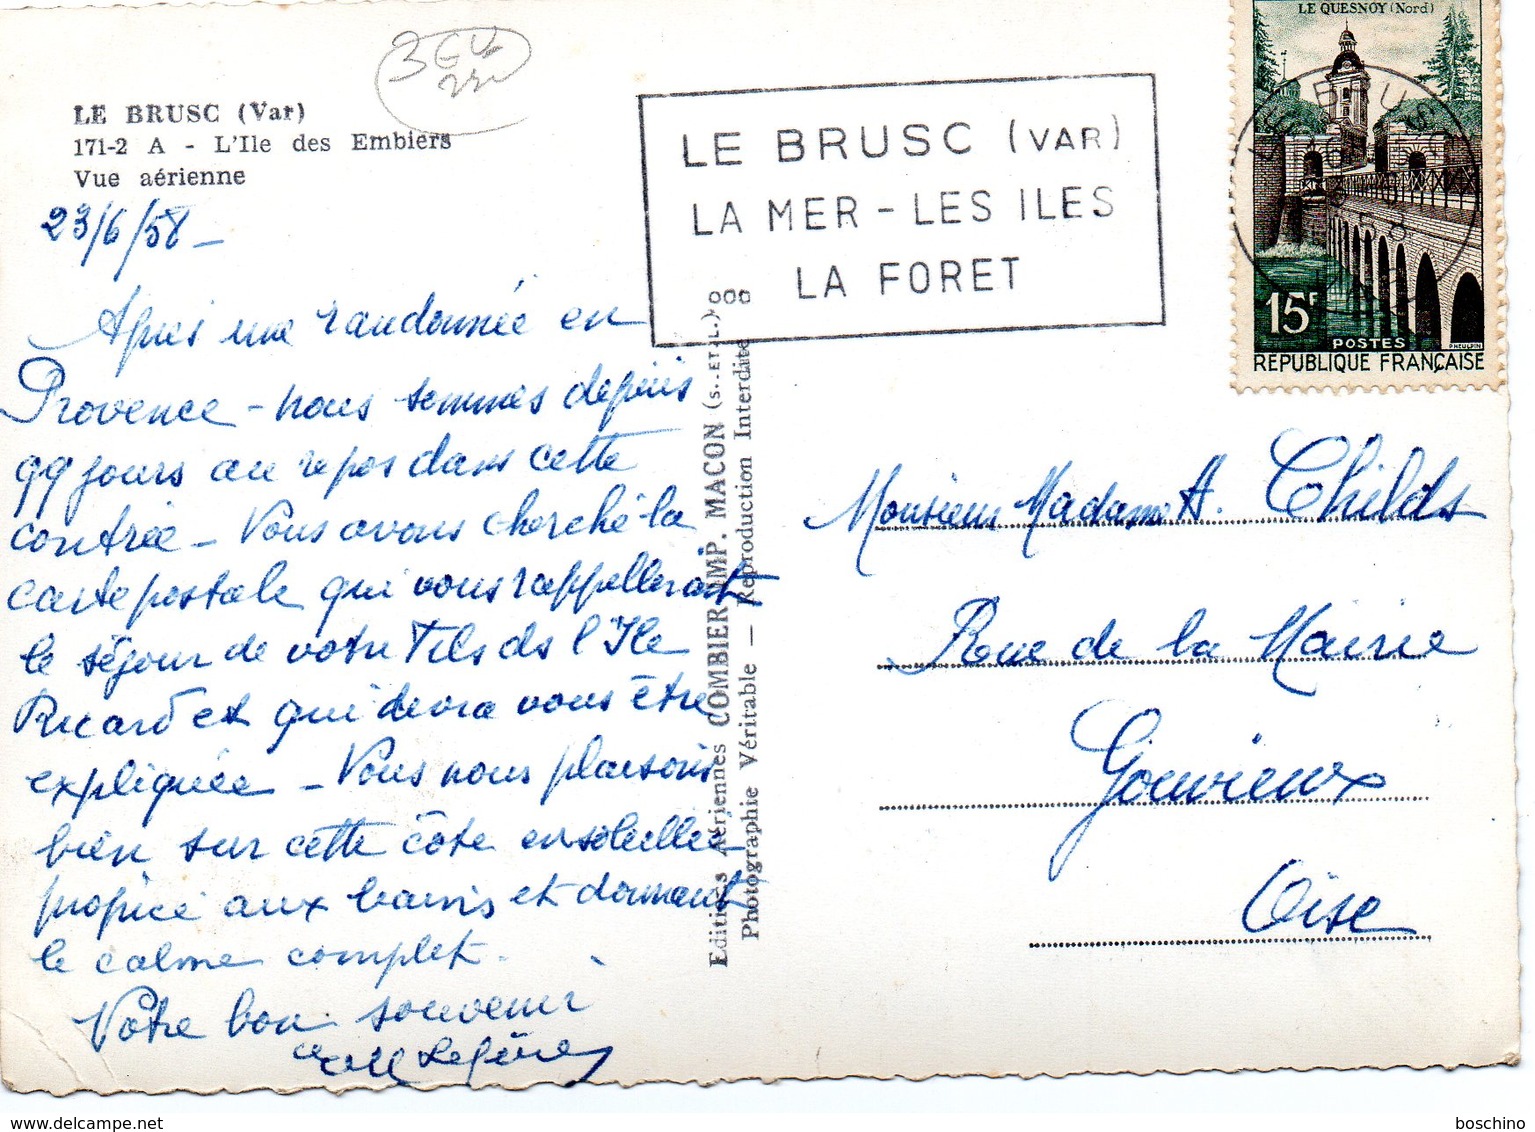 LE BRUSC (Var)
171-2 A - L'Ile des Embiers
Vue aérienne
23/6/58 -
Après une randonnée en
Provence - nous sommes depuis
qq jours au repos dans cette
contrée - Nous avons cherché la
carte postale qui vous rappellerait
le séjour de votre fils ds l'Ile
Ricard et qui devra vous être
expliquée - Nous nous plaisons
bien sur cette côte ensoleillée
propice aux bains et donnant
le calme complet.
Votre bon souvenir
Editions Aériennes COMBIER IMP. MACON (S.-ET-L.)
Photographie Véritable — Reproduction Interdite
LE BRUSC (VAR)
LA MER - LES ILES
LA FORET
LE QUESNOY (Nord)
15F
POSTES
P.MEULPIN
REPUBLIQUE FRANÇAISE
Monsieur Madame A. Childs
Rue de la Mairie
Gouvieux
Oise
boschino